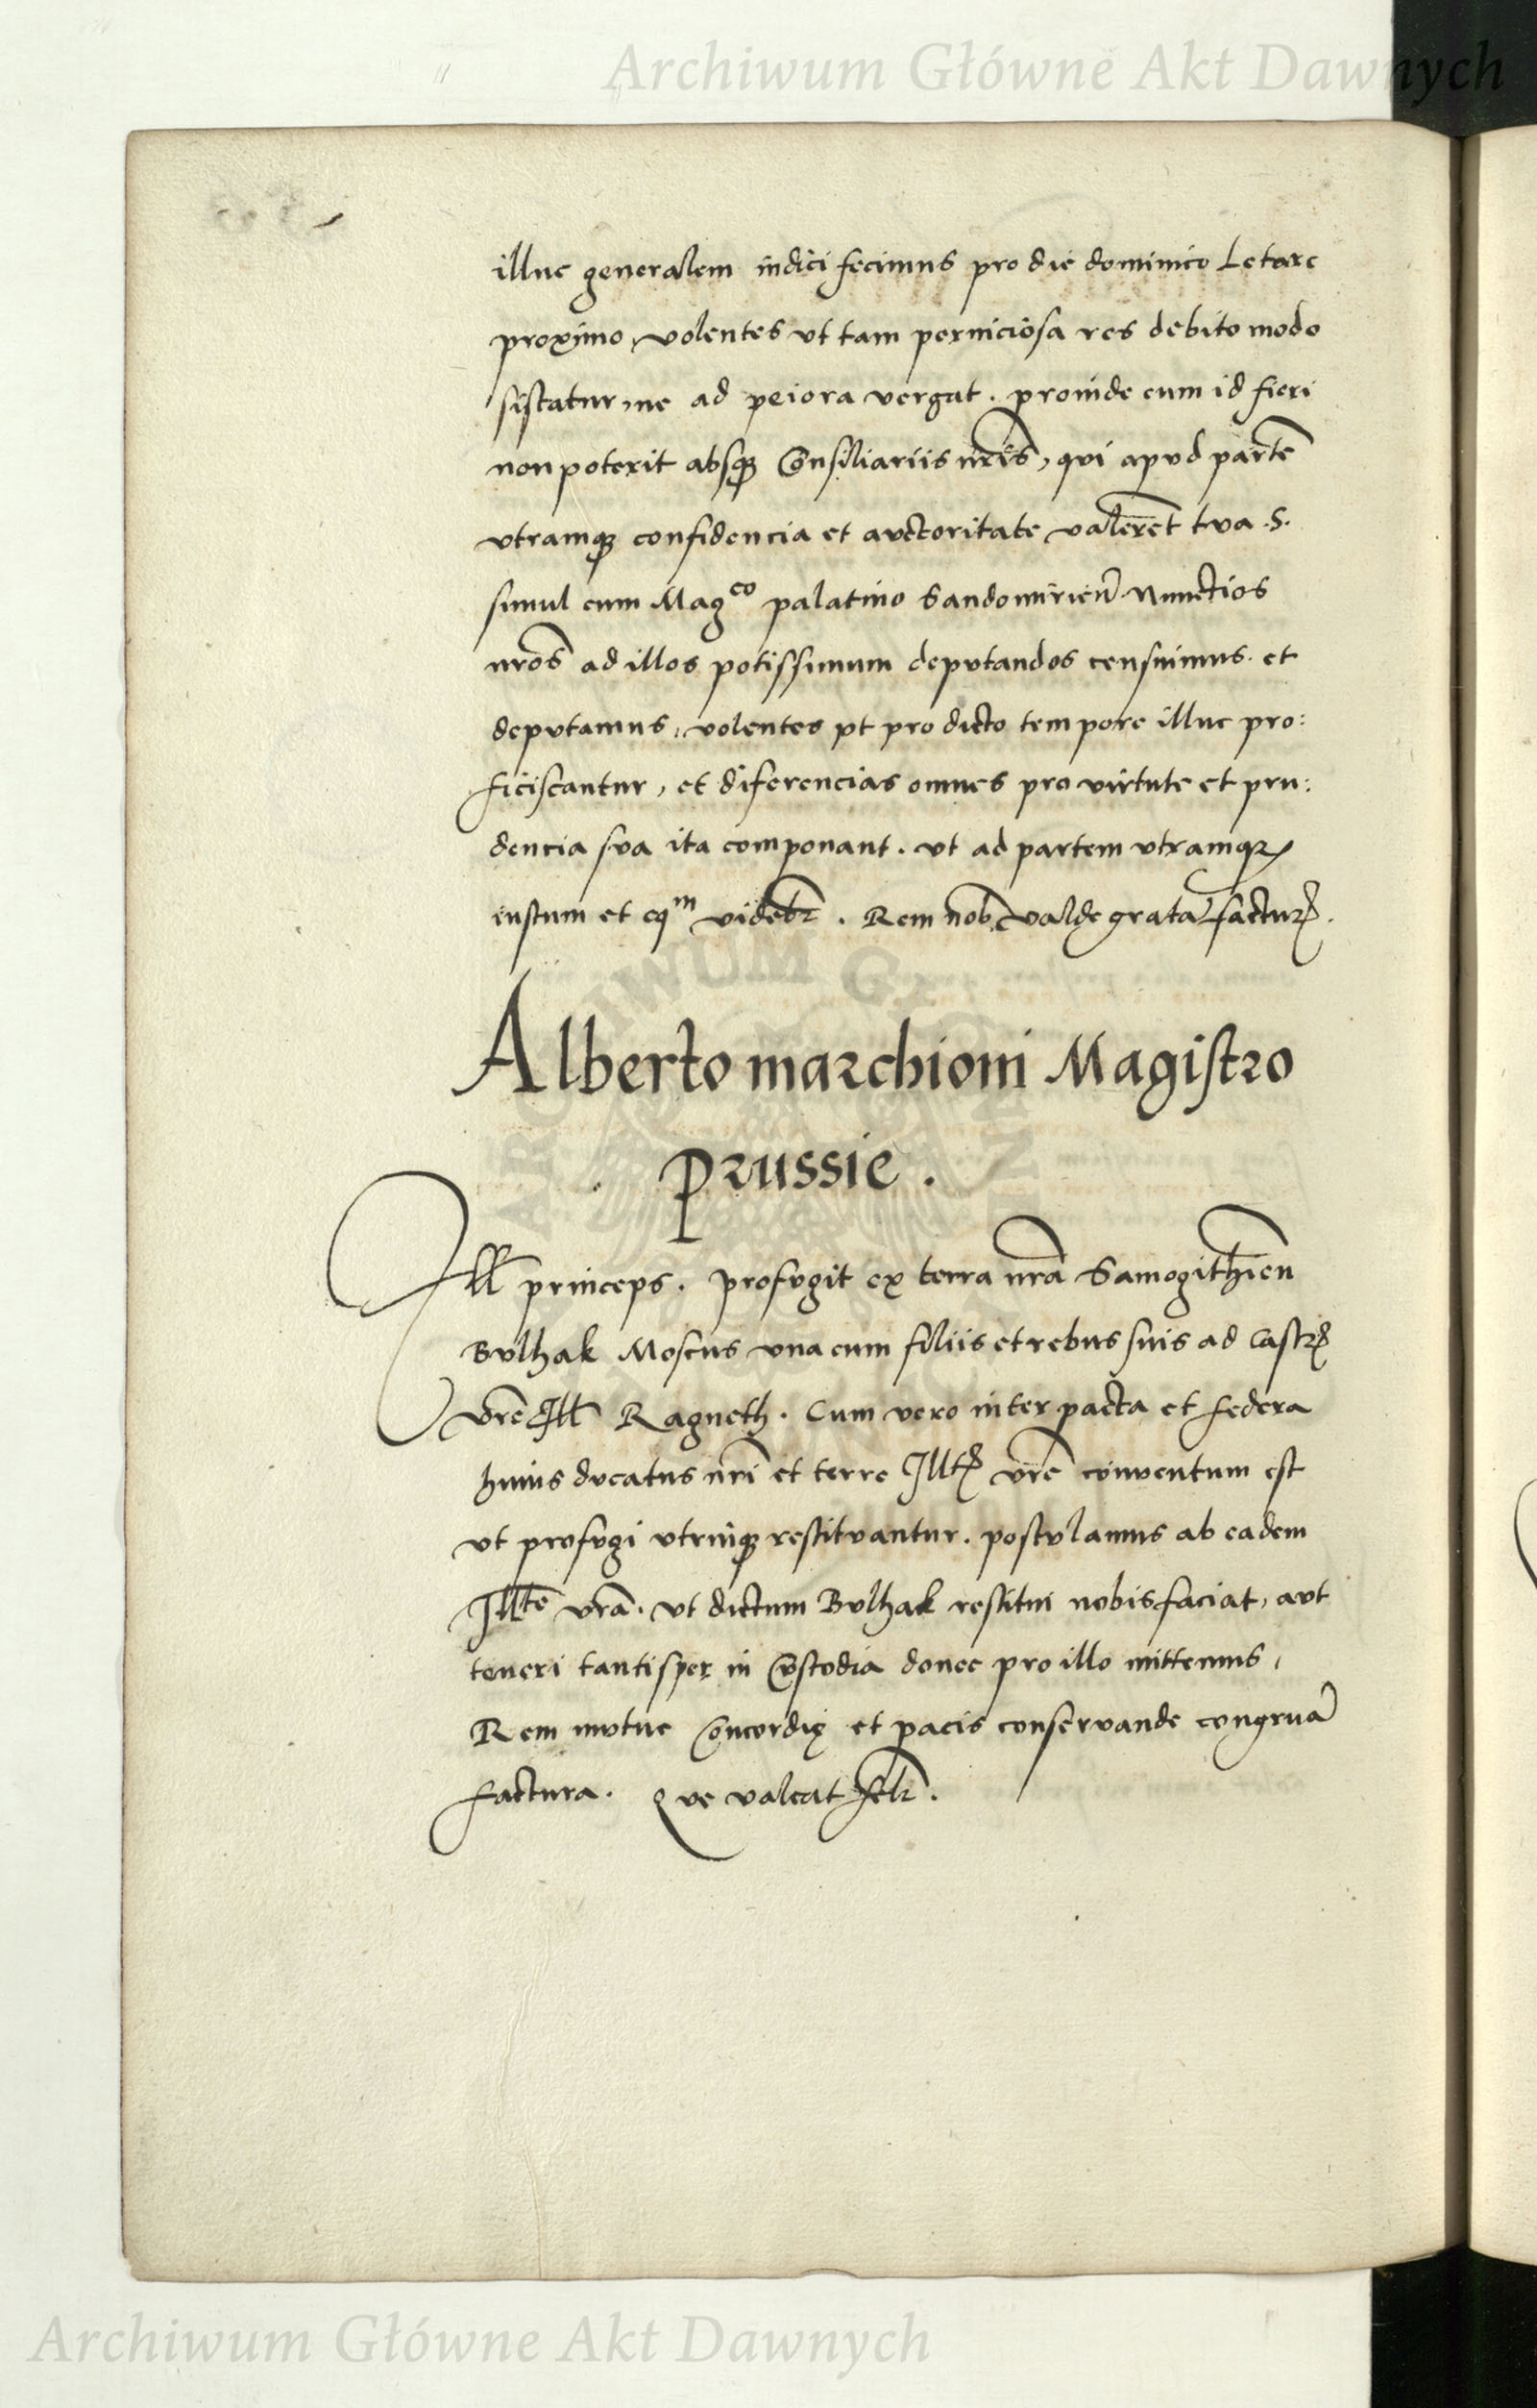 Archiwum Główne Akt Dawnych
illuc generalem indici fecimus pro die dominico Letare
proximo, volentes vt tam perniciosa res debito modo
sistatur, ne ad peiora vergat. proinde cum id fieri
non poterit absq3 Consiliariis nr̃is, qui apud partẽ
vtramq3 confidencia et auctoritate valerẽt tua .S.
simul cum Magco palatino Sandomirieñ. Nunctios
nr̃os ad illos potissimum deputandos censuimus. et
deputamus, volentes vt pro dicto tempore illuc pro:
ficiscantur, et diferencias omnes pro virtute et pru:
dencia sua ita componant. vt ad partem vtramq3
iustum et eqm videbr̃. Rem nob. valde gratã factur.
Alberto marchioni Magistro
Prussie.
Ill̃ princeps. profugit ex terra nr̃a Samogithieñ
Bulhak Moscus vna cum filiis et rebus suis ad Castr.
vr̃e Illt̃ Ragneth. Cum vero inter pacta et federa
huius ducatus nr̃i et terre Illt. vr̃e conventum est
vt profugi vtrinq3 restituantur. postulamus ab eadem
Illte vr̃a. vt dictum Bulhak restitui nobis faciat, aut
teneri tantisper in Custodia donec pro illo mittemus,
Rem mutue Concordię et pacis conservande congruã
factura. Que valeat felr̃.
Archiwum Główne Akt Dawnych